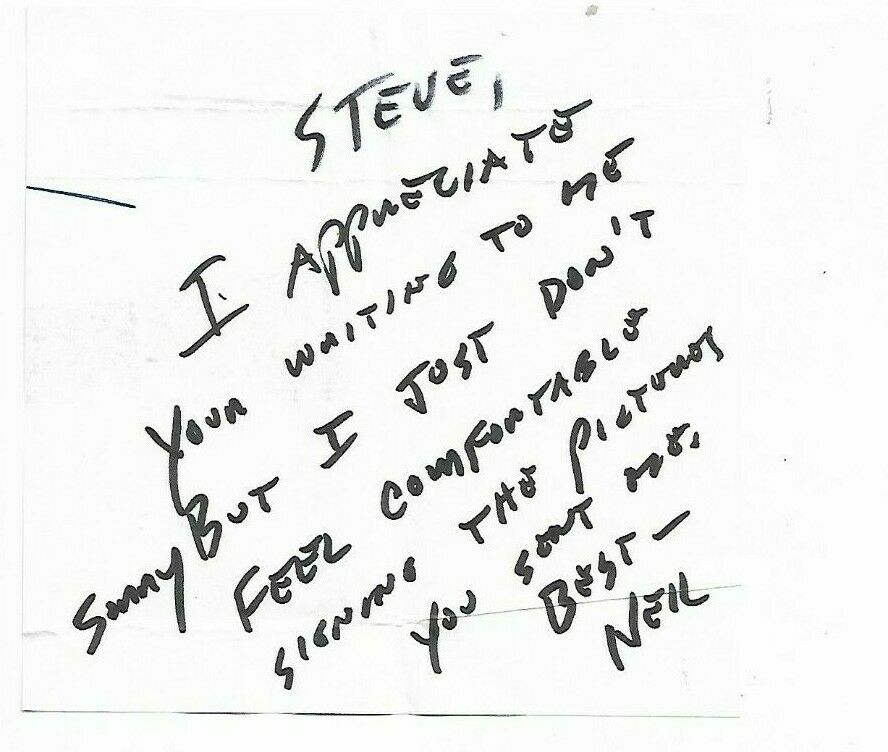 STEVE,
I APPRECIATE
YOUR WRITING TO ME
SORRY BUT I JUST DON'T
FEEL COMFORTABLE
SIGNING THE PICTURES
YOU SENT ME.
BEST—
NEIL